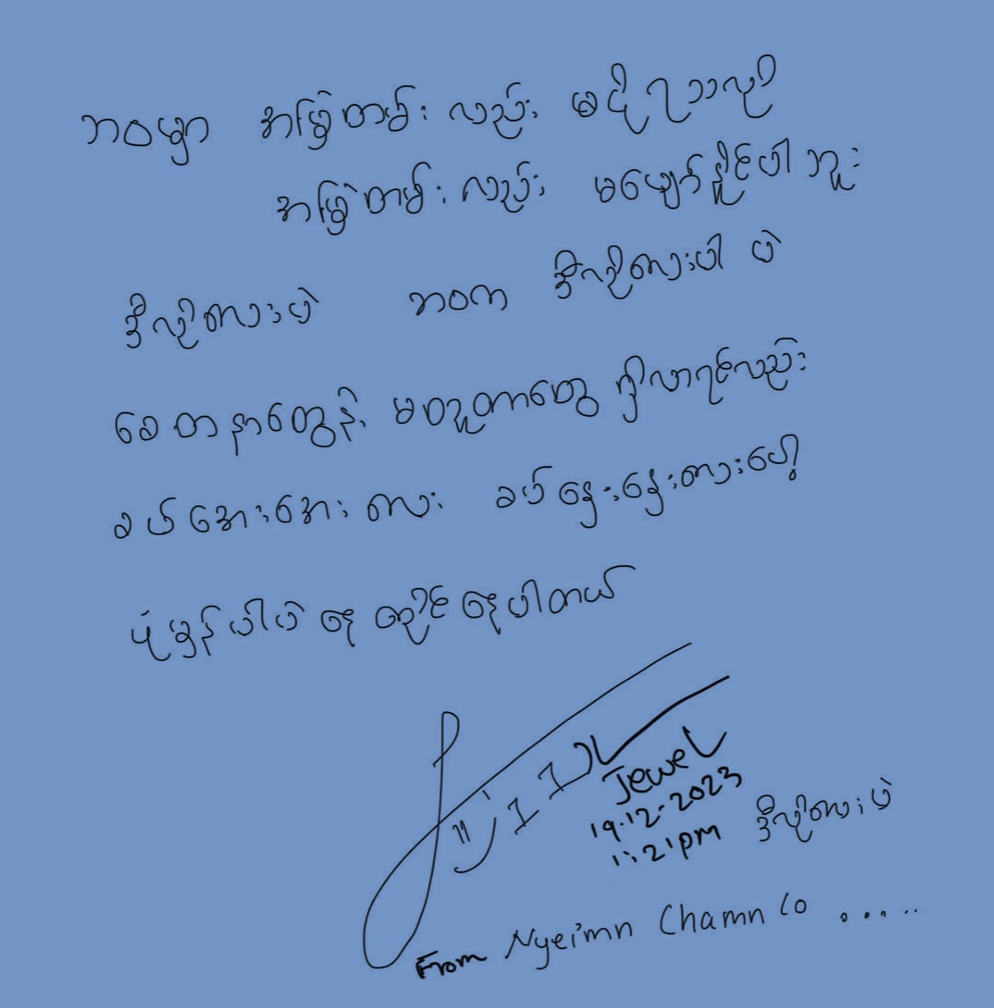 ဘဝမှာ အမြဲတမ်း လည်း မငိုရသလို
အမြဲတမ်း လည်း မပျော်နိုင်ပါဘူး
ဒီလိုလေးပဲ ဘဝက ဒီလိုလေးပါ ပဲ
စေတနာတွေနဲ့ မတူတာတွေ ရှိလာရင်လည်း
ခပ်အေးအေး လေး ခပ်နွေးနွေးလေးပေါ့
ပုံမှန်ပါပဲ နေ ထိုင် နေပါတယ်
Jewel
19.12.2023
11:21pm ဒီလိုလေးပဲ
From Nyeimn Chamn Co .....